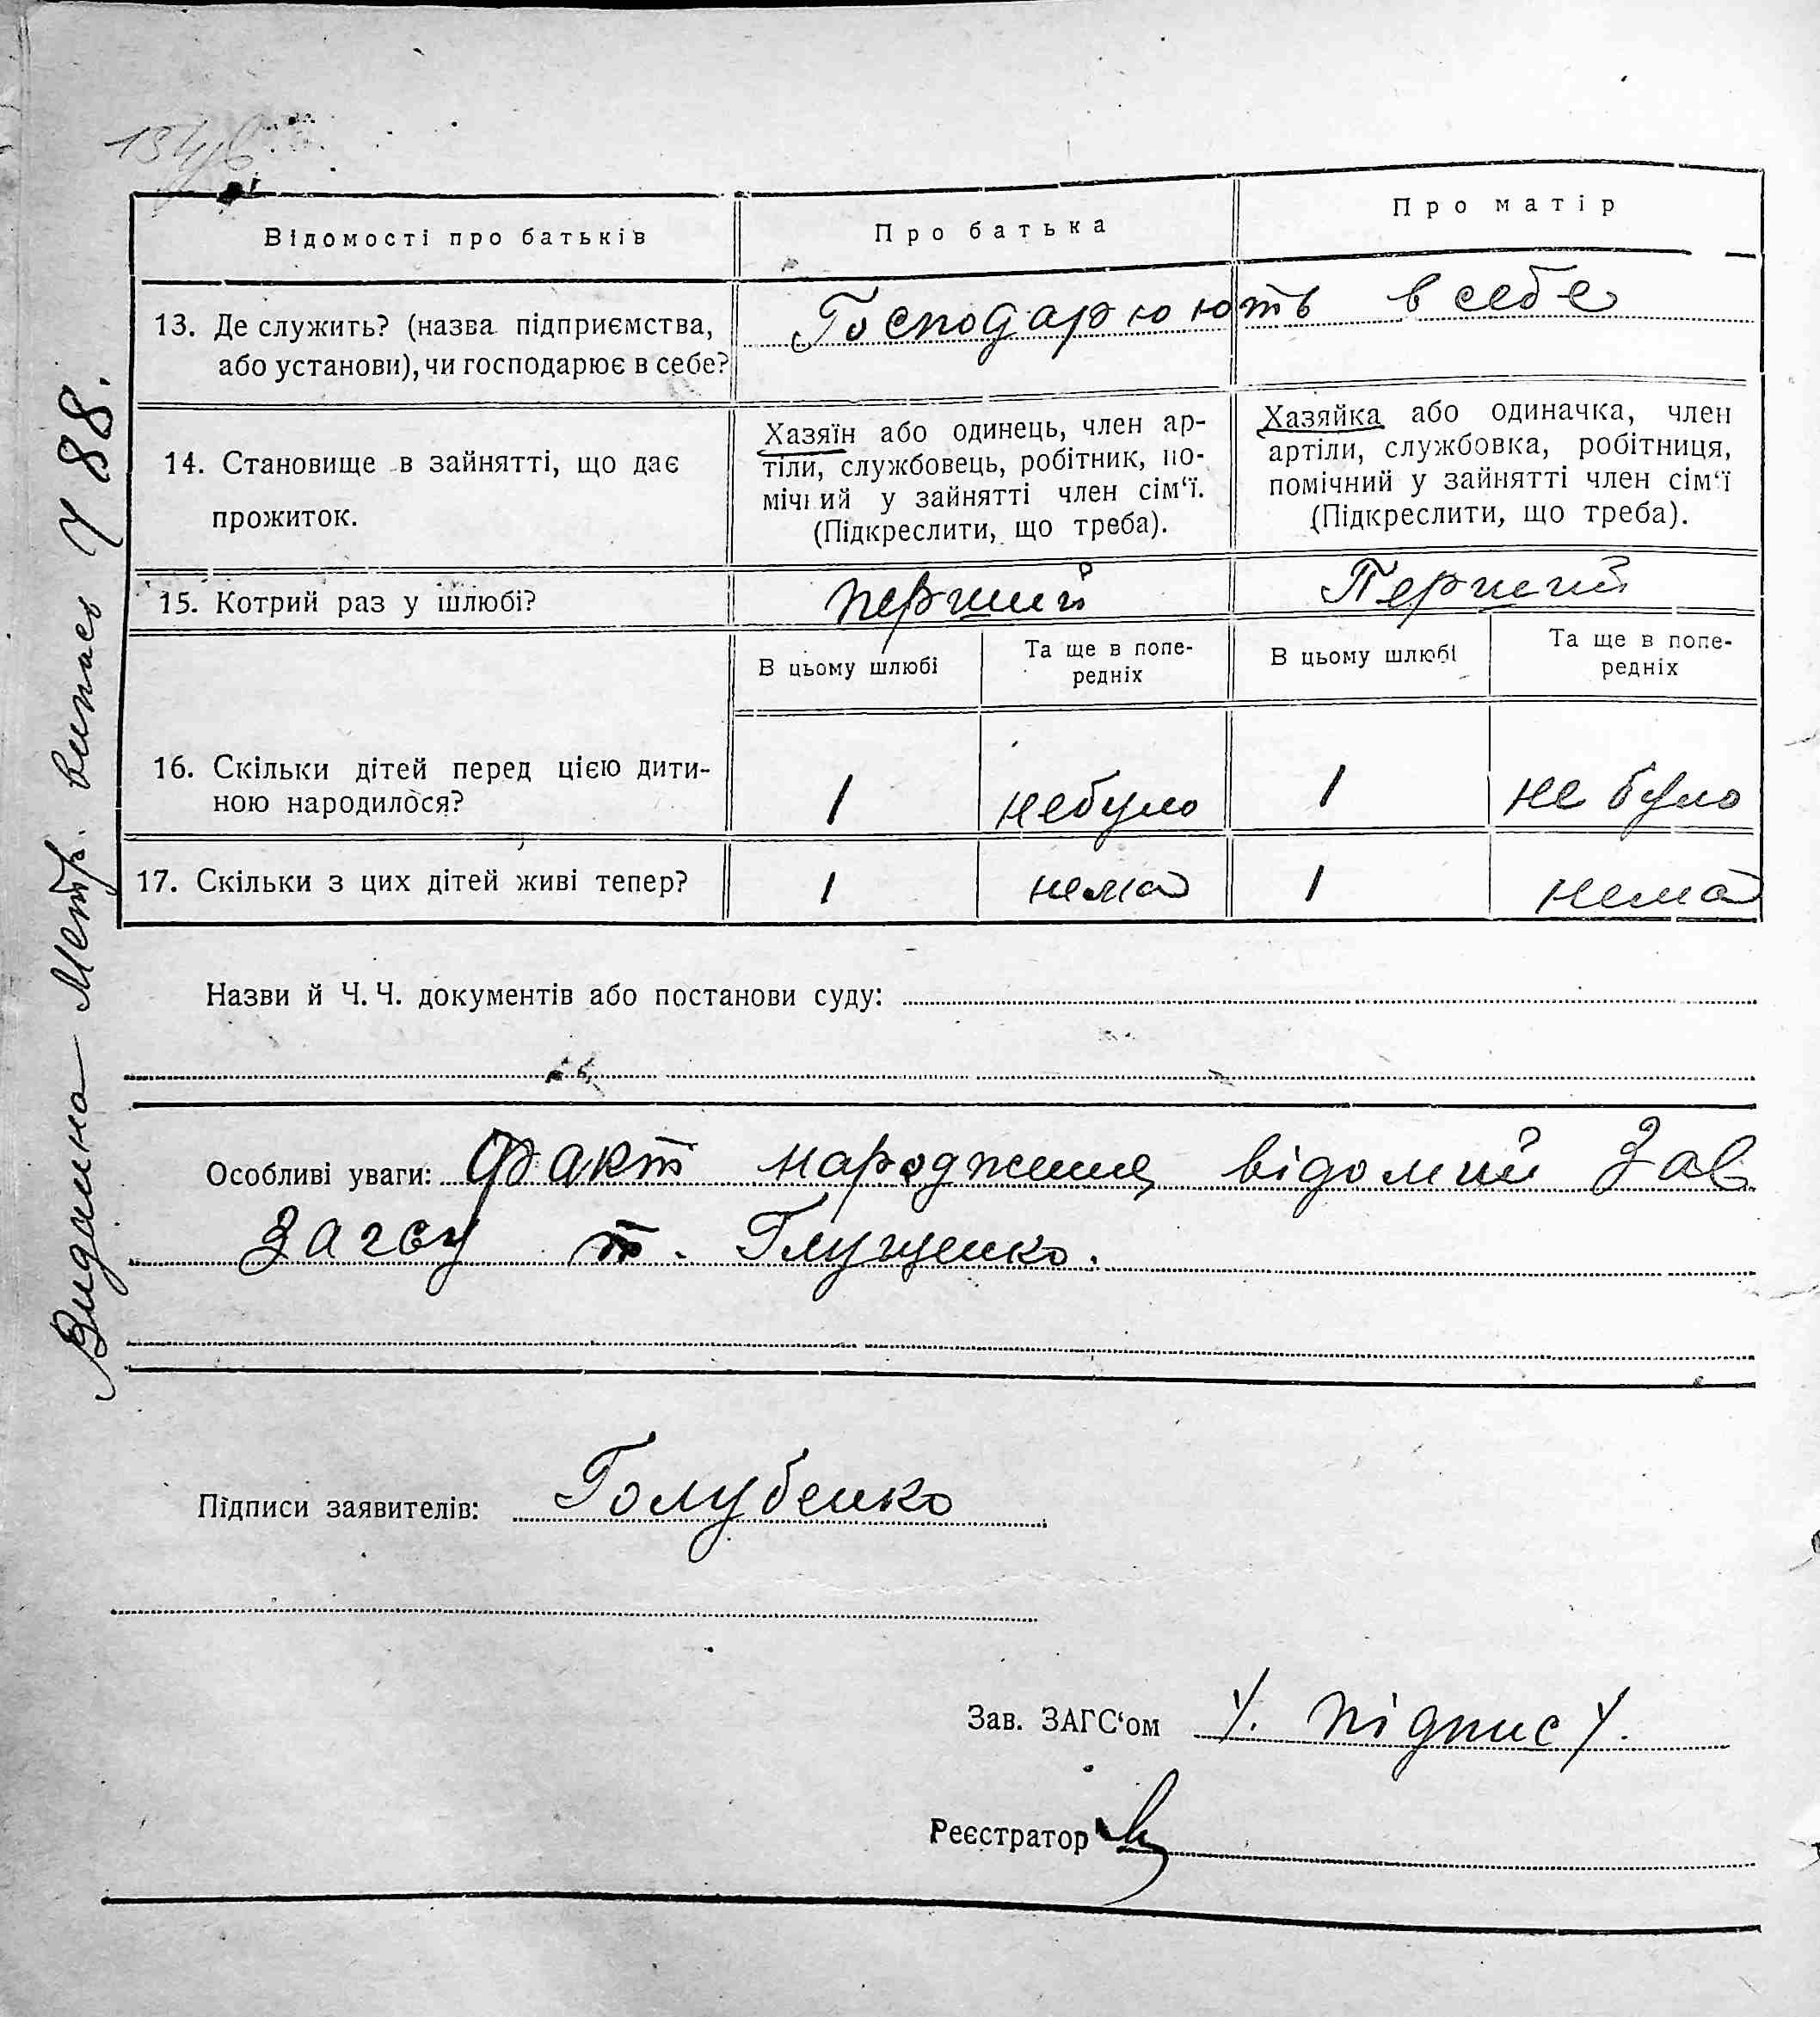 Відомості про батьків
Про батька
Про матір
13. Де служить? (назва підприємства,
або установи), чи господарює в себе?
Господарюють в себе
14. Становище в зайнятті, що дає
прожиток.
Хазяїн або одинець, член ар-
тіли, службовець, робітник, по-
мічний у зайнятті член сім‘ї.
(Підкреслити, що треба).
Хазяйка або одиначка, член
артіли, службовка, робітниця,
помічний у зайнятті член сім‘ї
(Підкреслити, що треба).
15. Котрий раз у шлюбі?
перший
Перший
В цьому шлюбі
Та ще в попе-
редніх
В цьому шлюбі
Та ще в попе-
редніх
16. Скільки дітей перед цією дити-
ною народилося?
1
небуло
1
не було
17. Скільки з цих дітей живі тепер?
1
нема
1
нема
Назви й Ч. Ч. документів або постанови суду:
Особливі уваги: Факт народження відомий Зав
Загсу т. Глущенко.
Підписи заявителів: Голубенко
Зав. ЗАГС‘ом /. підпис /.
Реєстратор
Видана Метр. випись 88.